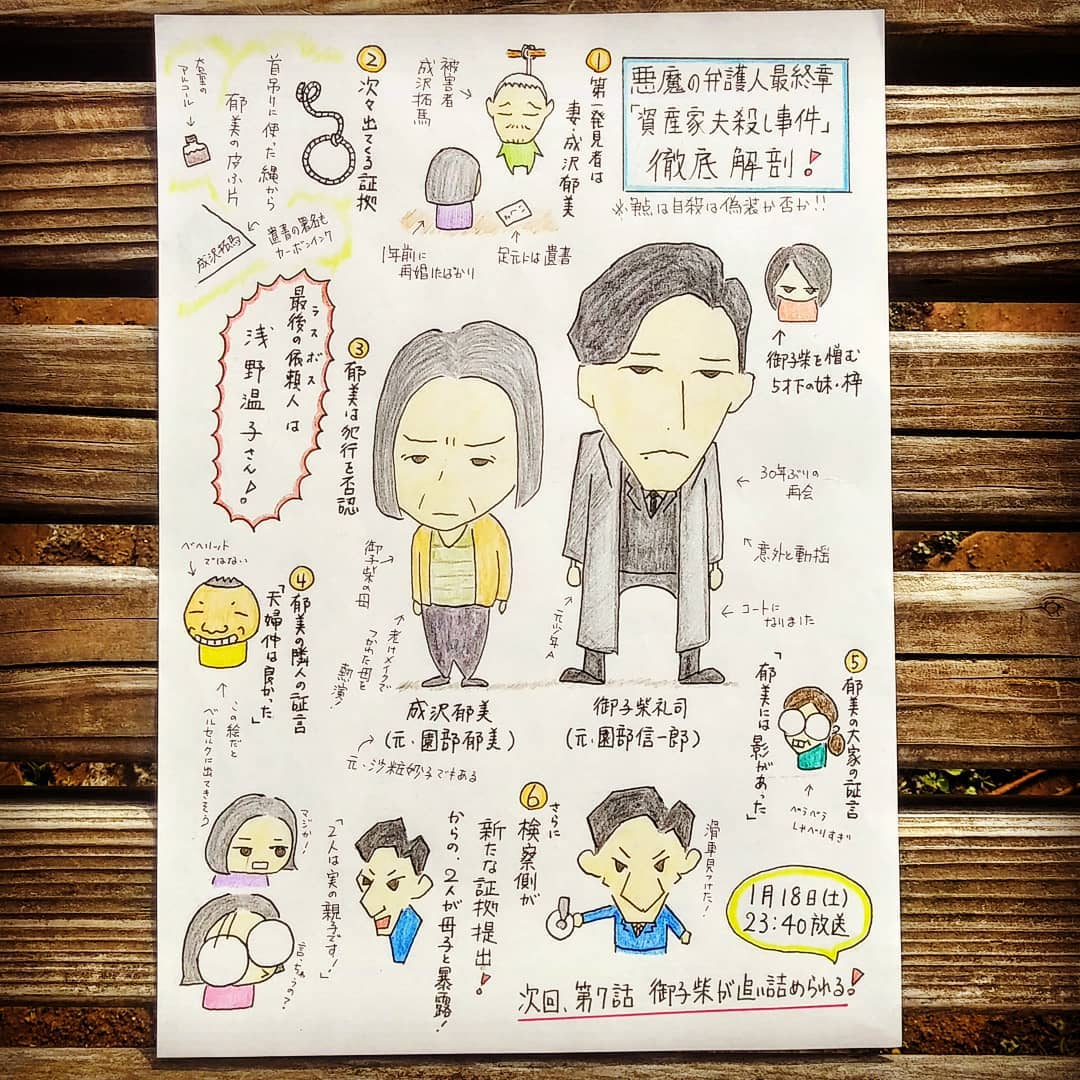 悪魔の弁護人最終章
「資産家夫殺し事件」
徹底解剖!
※争点は自殺は偽装か否か!!
①
第一発見者は
妻・成沢郁美
被害者
成沢拓馬
1年前に
再婚したばかり
足元には遺書
②
次々出てくる証拠
首吊りに使った縄から
郁美の皮ふ片
大量の
アルコール
遺書の署名も
カーボンインク
成沢拓馬
ラスボス
最後の依頼人は
浅野温子さん!
御子柴を憎む
5才下の妹・梓
③
郁美は犯行を否認
30年ぶりの
再会
意外と動揺
コートに
なりました
元少年A
御子柴の母
老けメイクで
つかれた母を
熱演!
成沢郁美
(元・園部郁美)
元・沙粧妙子でもある
御子柴礼司
(元・園部信一郎)
④
郁美の隣人の証言
「夫婦仲は良かった」
ベヘリット
ではない
この絵だと
ベルセルクに出てきそう
⑤
郁美の大家の証言
「郁美には影があった」
ぺらぺら
しゃべりすぎ
⑥
さらに
検察側が
新たな証拠提出!
からの、2人が母子と暴露!
滑車見つけた!
「2人は実の親子です!」
マジか!
言っちゃうの?
1月18日(土)
23:40放送
次回、第7話 御子柴が追い詰められる!